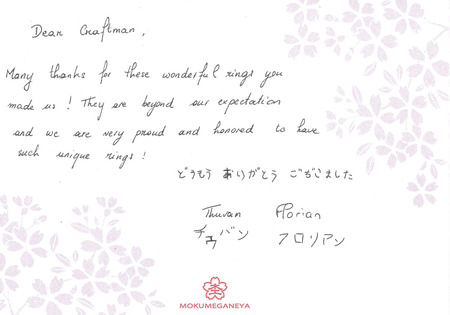 Dear Craftman,
Many thanks for these wonderful rings you
made us! They are beyond our expectation
and we are very proud and honored to have
such unique rings!
どうもう ありがとう ございました
Thuvan Florian
チュバン フロリアン
MOKUMEGANEYA